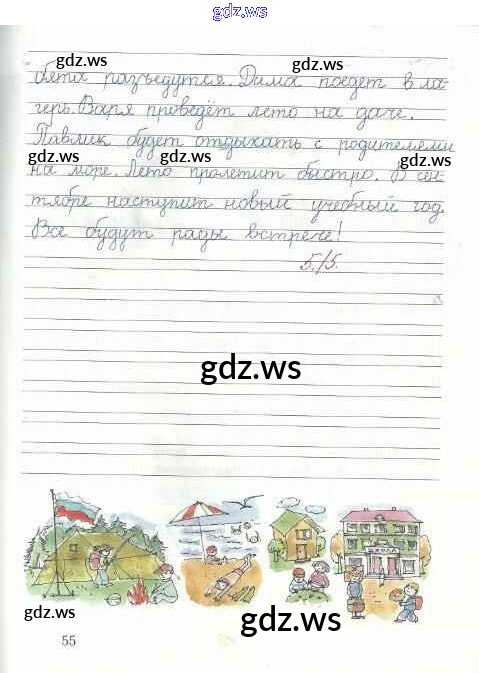 gdz.ws
gdz.ws gdz.ws
бята разъедутся. Дима поедет в ла-
герь. Варя проведёт лето на даче.
Павлик будет отдыхать с родителями
gdz.ws gdz.ws gdz.ws
на море. Лето пролетит быстро. В сен-
тябре наступит новый учебный год.
Все будут рады встрече!
5/5.
gdz.ws
ШКОЛА
gdz.ws gdz.ws
55